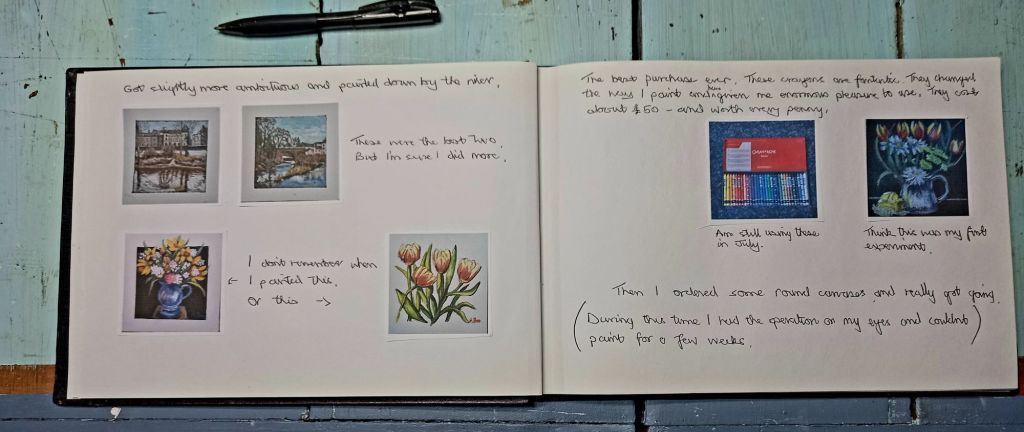 Got slightly more ambitious and painted down by the river.
These were the best two.
But I'm sure I did more.
I don't remember when
← I painted this.
Or this →
The best purchase ever. These crayons are fantastic. They changed
the way I paint and have given me enormous pleasure to use. They cost
about £50 - and worth every penny.
Am still using these
in July.
Think this was my first
experiment.
Then I ordered some round canvases and really got going.
(During this time I had the operation on my eyes and couldn't
paint for a few weeks.)